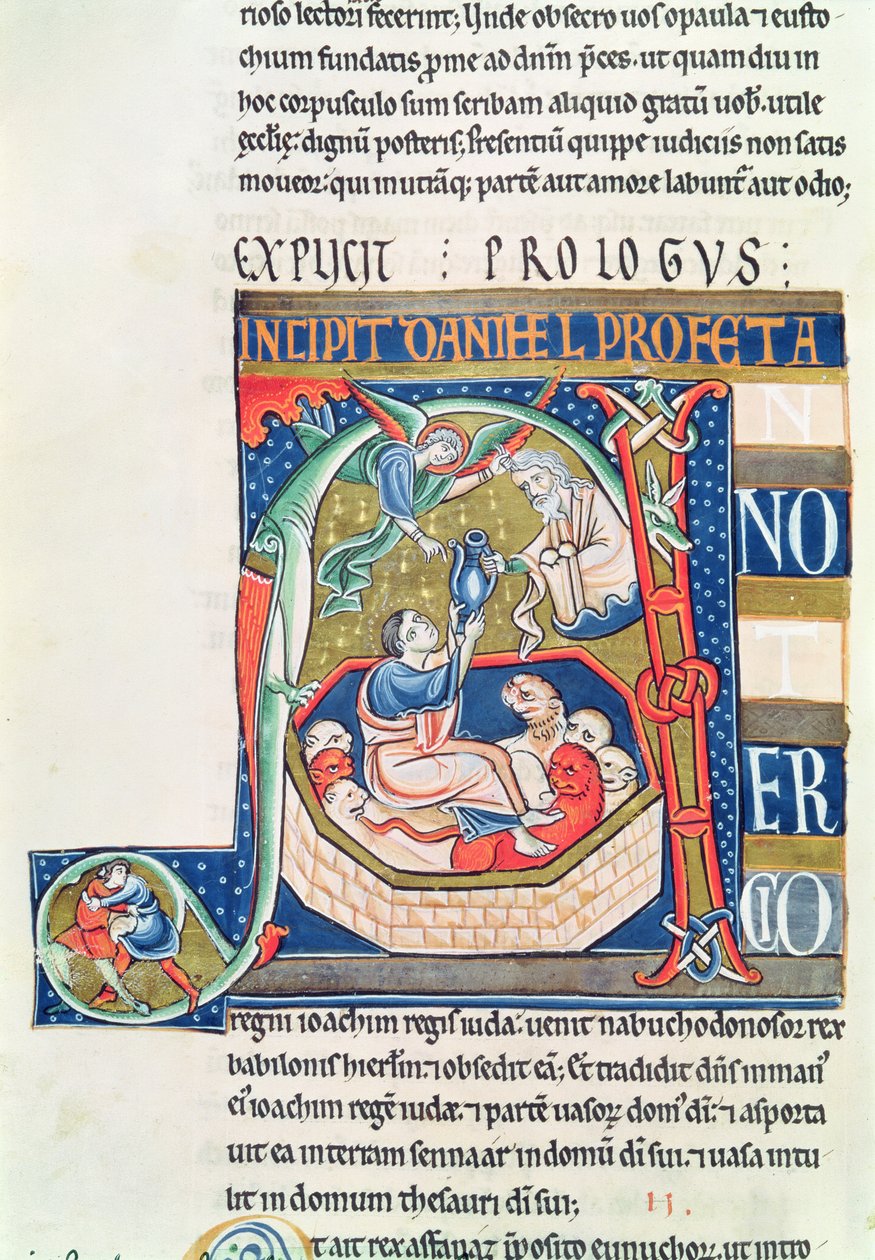 rioso lectori fecerint; Unde obsecro uos o paula ⁊ eusto
chium fundatis p̱ me ad dnm̄ p̄ces. ut quam diu in
hoc corpusculo sum scribam aliquid gratū uob̄. utile
ęccłię. dignū posteris; Presentiū quippe iudiciis non satis
moueor: qui in utrāq; partē aut amore labunt̄ aut odio;
EXPLICIT : PROLOGVS :
INCIPIT DANIHEL PROFETA
A
N
NO
T
ER
CIO
regni ioachim regis iuda. uenit nabuchodonosor rex
babilonis hierłm. ⁊ obsedit eā; Et tradidit dn̄s in manꝰ
eiꝰ ioachim regē iudæ. ⁊ partē uasoꝝ domꝰ dī. ⁊ asporta
uit ea in terram sennaar in domū dī sui. ⁊ uasa intu
lit in domum thesauri dī sui; II.
t ait rex asfanaz p̄posito eunuchoꝝ. ut intro